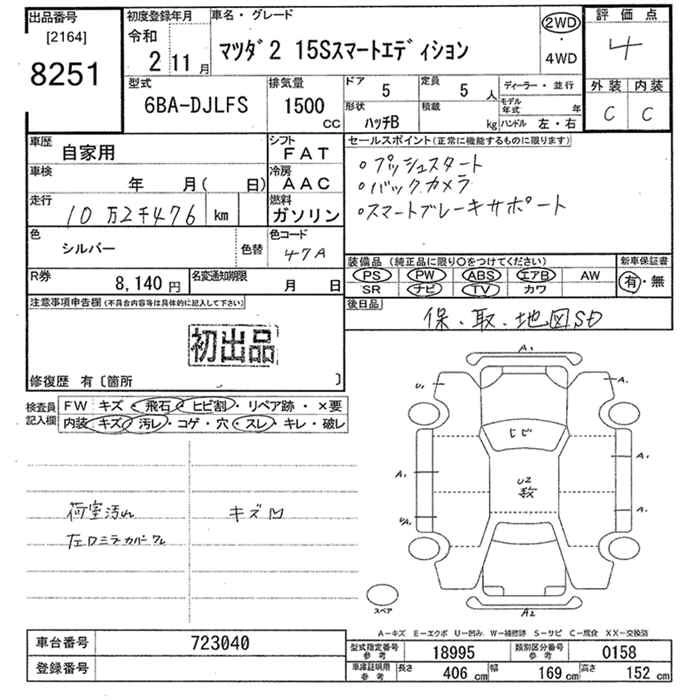 出品番号 初度登録年月 車名・グレード 2WD 評価点
[2164] 令和 ・
8251 2 11月 マツダ2 15Sスマートエディション 4WD 4
型式 排気量 ドア 5 定員 5人 ディーラー・並行 外装 内装
6BA-DJLFS 1500 cc 形状 ハッチB 積載 kg モデル年式 年 ハンドル 左・右 C C
車歴 自家用 シフト FAT セールスポイント(正常に機能するものに限ります)
車検 年 月( 日) 冷房 AAC ○プッシュスタート
○バックカメラ
走行 10万2千476 km 燃料 ガソリン ○スマートブレーキサポート
色 シルバー 色替 色コード 47A
装備品(純正品に限り○をつけてください) 新車保証書
R券 8,140円 名変通知期限 月 日 PS PW ABS エアB AW 有・無
SR ナビ TV カワ
注意事項申告欄(不具合内容等は具体的に記入して下さい) 後日品 保・取・地図SD
初出品
修復歴 有〔箇所 〕
検査員記入欄 FW キズ・飛石・ヒビ割・リペア跡・×要
内装 キズ・汚レ・コゲ・穴・スレ・キレ・破レ
A1
U1 A1
ヒビ
A1 U2 A1
数
A1
荷室汚れ キズ凹
左ロミラーカバーワレ
スペア A2
A-キズ E-エクボ U-凹み W-補修跡 S-サビ C-腐食 XX-交換済
車台番号 723040 型式指定番号参考 18995 類別区分番号参考 0158
登録番号 車庫証明用参考 長さ 406cm 幅 169cm 高さ 152cm